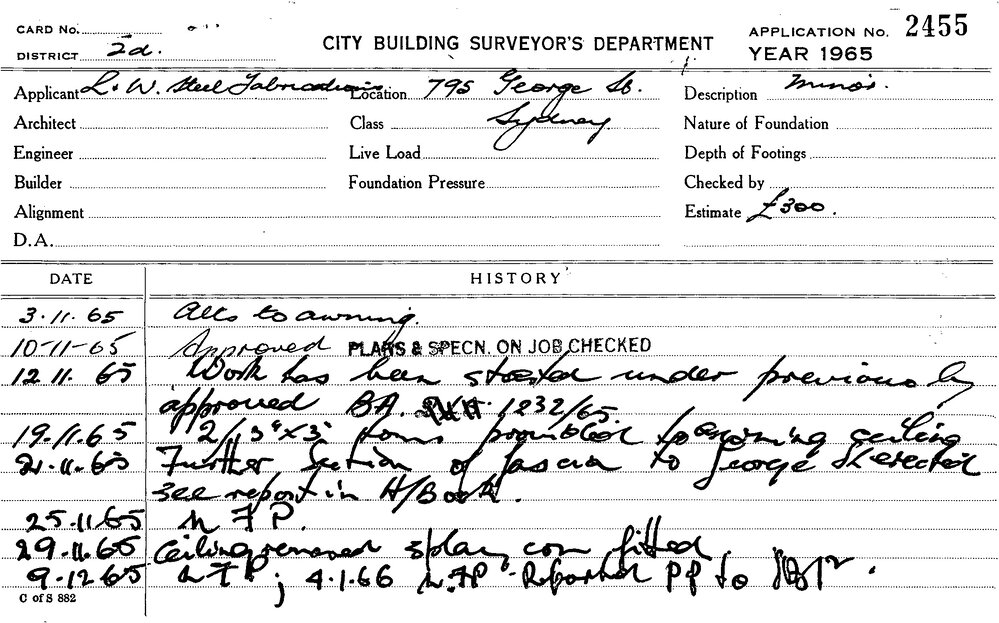 CARD No.
DISTRICT 2d.
CITY BUILDING SURVEYOR'S DEPARTMENT
APPLICATION No. 2455
YEAR 1965
Applicant L. W. Steel Fabrications Location 795 George St. Description Minor.
Architect Class Sydney Nature of Foundation
Engineer Live Load Depth of Footings
Builder Foundation Pressure Checked by
Alignment Estimate £300.
D.A.
DATE HISTORY
3.11.65 Alts to awning.
10-11-65 Approved PLANS & SPECN. ON JOB CHECKED
12.11.65 Work has been started under previously
approved BA. 1232/65.
19.11.65 2/3"x3" provided to awning ceiling
21.11.65 Further Section of fascia to George St erected
see report in H/Book.
25.11.65 N F P.
29.11.65 Ceiling removed splay fitted
9.12.65 N F P; 4.1.66 N.F.P Reported PP to
C of S 882